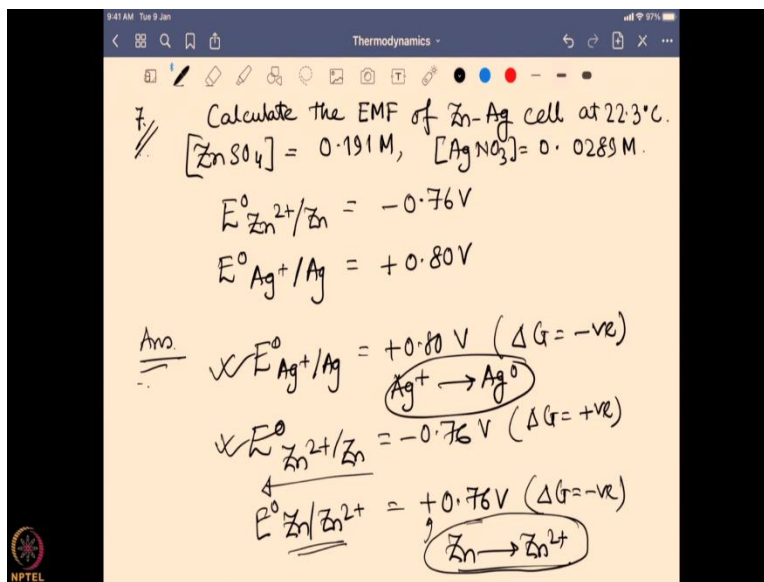 9:41 AM Tue 9 Jan
97%
Thermodynamics
7. Calculate the EMF of Zn-Ag cell at 22.3°C.
[ZnSO4] = 0.191 M, [AgNO3] = 0.0289 M.
E⁰ Zn²⁺/Zn = -0.76 V
E⁰ Ag⁺/Ag = +0.80 V
Ans. E⁰ Ag⁺/Ag = +0.80 V (ΔG = -ve)
Ag⁺ → Ag⁰
E⁰ Zn²⁺/Zn = -0.76 V (ΔG = +ve)
E⁰ Zn/Zn²⁺ = +0.76 V (ΔG = -ve)
Zn → Zn²⁺
NPTEL